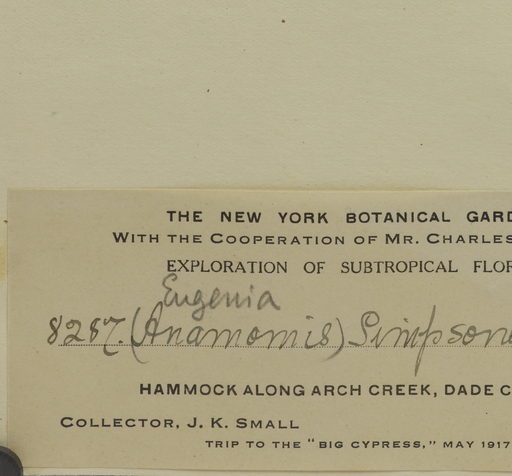 THE NEW YORK BOTANICAL GARD
WITH THE COOPERATION OF MR. CHARLES
EXPLORATION OF SUBTROPICAL FLOR
Eugenia
8287. (Anamomis) Simpson
HAMMOCK ALONG ARCH CREEK, DADE C
COLLECTOR, J. K. SMALL
TRIP TO THE "BIG CYPRESS," MAY 1917